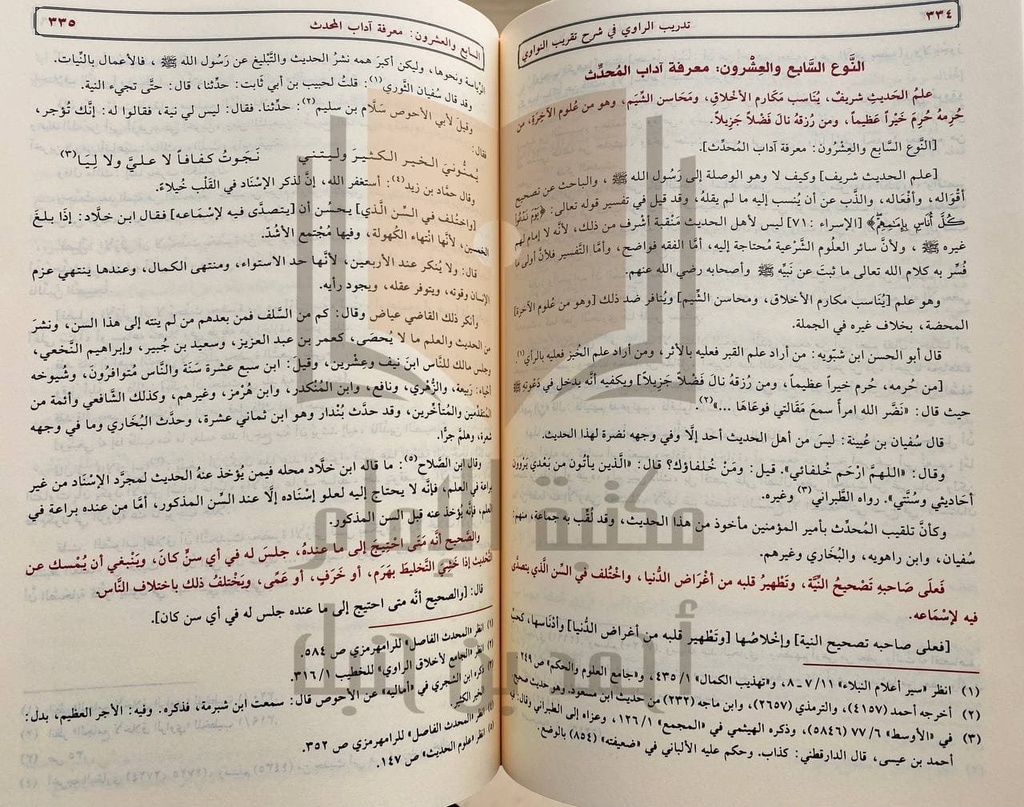 ٣٣٤
تدريب الراوي في شرح تقريب النواوي
النَّوع السَّابع والعِشْرون: معرفة آداب المُحدِّث
علمُ الحَديثِ شريفٌ، يُنَاسب مكارم الأخْلاقِ، ومَحَاسن الشِّيَم، وهو من عُلومِ الآخِرَةِ، من
حُرِمهُ حُرِمَ خَيْراً عَظيماً، ومن رُزِقهُ نالَ فَضْلاً جَزيلاً.
[النَّوع السَّابع والعِشْرُون: معرفة آداب المُحدِّث].
[علم الحديث شريف] وكيف لا وهو الوصلة إلى رَسُول الله ﷺ، والباحث عن تصحيح
أقواله، وأفعاله، والذَّب عن أن يُنسب إليه ما لم يقلهُ، وقد قيل في تفسير قوله تعالى: ﴿يَوْمَ نَدْعُوا
كُلَّ أُنَاسٍ بِإِمَامِهِمْ﴾ [الإسراء: ٧١] ليس لأهل الحديث مَنْقبة أشرف من ذلك، لأنَّه لا إمام لهم
غيره ﷺ، ولأنَّ سائر العلُوم الشَّرعية مُحتاجة إليه، أمَّا الفقه فواضح، وأمَّا التَّفسير فلأنَّ أولى ما
فُسِّر به كلام الله تعالى ما ثبتَ عن نَبيِّه ﷺ وأصحابه رضي الله عنهم.
وهو علم [يُنَاسب مكارم الأخلاق، ومحاسن الشِّيم] ويُنافر ضد ذلك [وهو من عُلوم الآخرة]
المحضة، بخلاف غيره في الجملة.
قال أبو الحسن ابن شبّويه: من أراد علم القبر فعليه بالأثر، ومن أراد علم الخُبز فعليه بالرأي(١)
[من حُرمه، حُرم خيراً عظيماً، ومن رُزقهُ نالَ فَضْلاً جَزيلاً] ويكفيه أنَّه يدخل في دَعْوته ﷺ
حيث قال: «نَضَّر الله امرأً سمعَ مَقَالتي فوعَاهَا ...»(٢).
قال سُفيان بن عُيينة: ليسَ من أهل الحديث أحد إلَّا وفي وجهه نضرة لهذا الحديث.
وقال: «اللهمَّ ارْحَم خُلفائي». قيل: ومَنْ خُلفاؤك؟ قال: «الَّذين يأتُون من بَعْدي يَرْوون
أحَاديثي وسُنَّتي». رواه الطَّبراني(٣) وغيره.
وكأنَّ تلقيب المُحدِّث بأمير المؤمنين مأخوذ من هذا الحديث، وقد لُقِّب به جماعة، منهم:
سُفيان، وابن راهويه، والبُخَاري وغيرهم.
فَعلى صَاحبهِ تَصْحيحُ النِّيَّة، وتَطْهيرُ قلبه من أعْراض الدُّنيا، واختُلف في السِّن الَّذي يتصدَّى
فيه لإسْمَاعه.
[فعلى صاحبه تصحيح النية] وإخْلاصُها [وتَطْهير قلبه من أغراض الدُّنيا] وأدْنَاسها، كحب
(١) انظر «سير أعلام النبلاء» ٧/١١ - ٨، و«تهذيب الكمال» ٤٣٥/١، و«جامع العلوم والحكم» ص ٢٤٩
(٢) أخرجه أحمد (٤١٥٧)، والترمذي (٢٦٥٧)، وابن ماجه (٢٣٢) من حديث ابن مسعود. وهو حديث صحيح
(٣) في «الأوسط» ٧٧/٦ (٥٨٤٦)، وذكره الهيثمي في «المجمع» ١٢٦/١، وعزاه إلى الطبراني وقال: في
أحمد بن عيسى، قال الدارقطني: كذاب. وحكم عليه الألباني في «ضعيفته» (٨٥٤) بالوضع.
السابع والعشرون: معرفة آداب المحدث
٣٣٥
الرِّياسة ونحوها، وليكن أكبرَ همه نشرُ الحديث والتَّبليغ عن رَسُول الله ﷺ، فالأعمال بالنِّيات.
وقد قال سُفيان الثَّوري(١): قلتُ لحبيب بن أبي ثابت: حدِّثنا، قال: حتَّى تجيء النية.
وقيلَ لأبي الأحوص سَلَّام بن سليم(٢): حدِّثنا. فقال: ليس لي نية، فقالوا له: إنَّك تُؤجر،
فقال:
يُمنُّونيَ الخيرَ الكثيرَ وليتني نَجَوتُ كفافاً لا عليَّ ولا لِيَا(٣)
وقال حمَّاد بن زيد(٤): أستغفر الله، إنَّ لذكر الإسْنَاد في القَلْب خُيلاءً.
[واختُلف في السِّن الَّذي] يحسُن أن [يتصدَّى فيه لإسْمَاعه] فقال ابن خلَّاد: إذا بلغَ
الخمسين، لأنَّها انْتهاء الكُهولة، وفيها مُجْتمع الأشُدّ.
قال: ولا يُنكر عند الأربعين، لأنَّها حد الاستواء، ومنتهى الكمال، وعندها ينتهي عزم
الإنسان وقوته، ويتوفر عقله، ويجود رأيه.
وأنكر ذلك القاضي عياض وقال: كم من السَّلف فمن بعدهم من لم ينته إلى هذا السن، ونشرَ
من الحديث والعلم ما لا يُحصَى، كعمر بن عبد العزيز، وسعيد بن جُبير، وإبراهيم النَّخعي،
وجلس مالك للنَّاس ابن نيف وعِشْرين، وقيل: ابن سبع عشرة سَنَة والنَّاس مُتوافرُون، وشُيوخه
أحياء: رَبيعة، والزُّهري، ونافع، وابن المُنْكدر، وابن هُرْمز، وغيرهم، وكذلك الشَّافعي وأئمة من
المتقدِّمين والمُتأخِّرين، وقد حدَّث بُندار وهو ابن ثماني عشرة، وحدَّث البُخَاري وما في وجهه
شعرة، وهلمَّ جرًّا.
وقال ابن الصَّلاح(٥): ما قاله ابن خلَّاد محله فيمن يُؤخذ عنهُ الحديث لمجرَّد الإسْنَاد من غير
براعة في العلم، فإنَّه لا يحتاج إليه لعلو إسْنَاده إلَّا عند السِّن المذكور، أمَّا من عنده براعة في
العلم، فإنَّه يُؤخذ عنه قبل السن المذكور.
والصَّحيح أنَّه مَتَى احْتِيجَ إلى ما عندهُ، جلسَ له في أي سنٍّ كانَ، ويَنْبغي أن يُمْسك عن
التَّحْديث إذا خَشِيَ التَّخليطَ بهَرَم، أو خَرَفٍ، أو عَمًى، ويَخْتلفُ ذلك باختلاف النَّاس.
قال: [والصحيح أنَّه متى احتيج إلى ما عنده جلس له في أي سن كان].
(١) انظر «المحدث الفاصل» للرامهرمزي ص ٥٨٤.
(٢) انظر «الجامع لأخلاق الراوي» للخطيب ٣١٦/١.
(٣) ذكره ابن الشجري في «أماليه» عن الأحوص قال: سمعت ابن شبرمة، فذكره. وفيه: الأجر العظيم، بدل:
الخير الكثير.
(٤) انظر «المحدث الفاصل» للرامهرمزي ص ٣٥٢.
(٥) انظر «علوم الحديث» ص ١٤٧.
مكتبة الإمام
أحمد بن حنبل